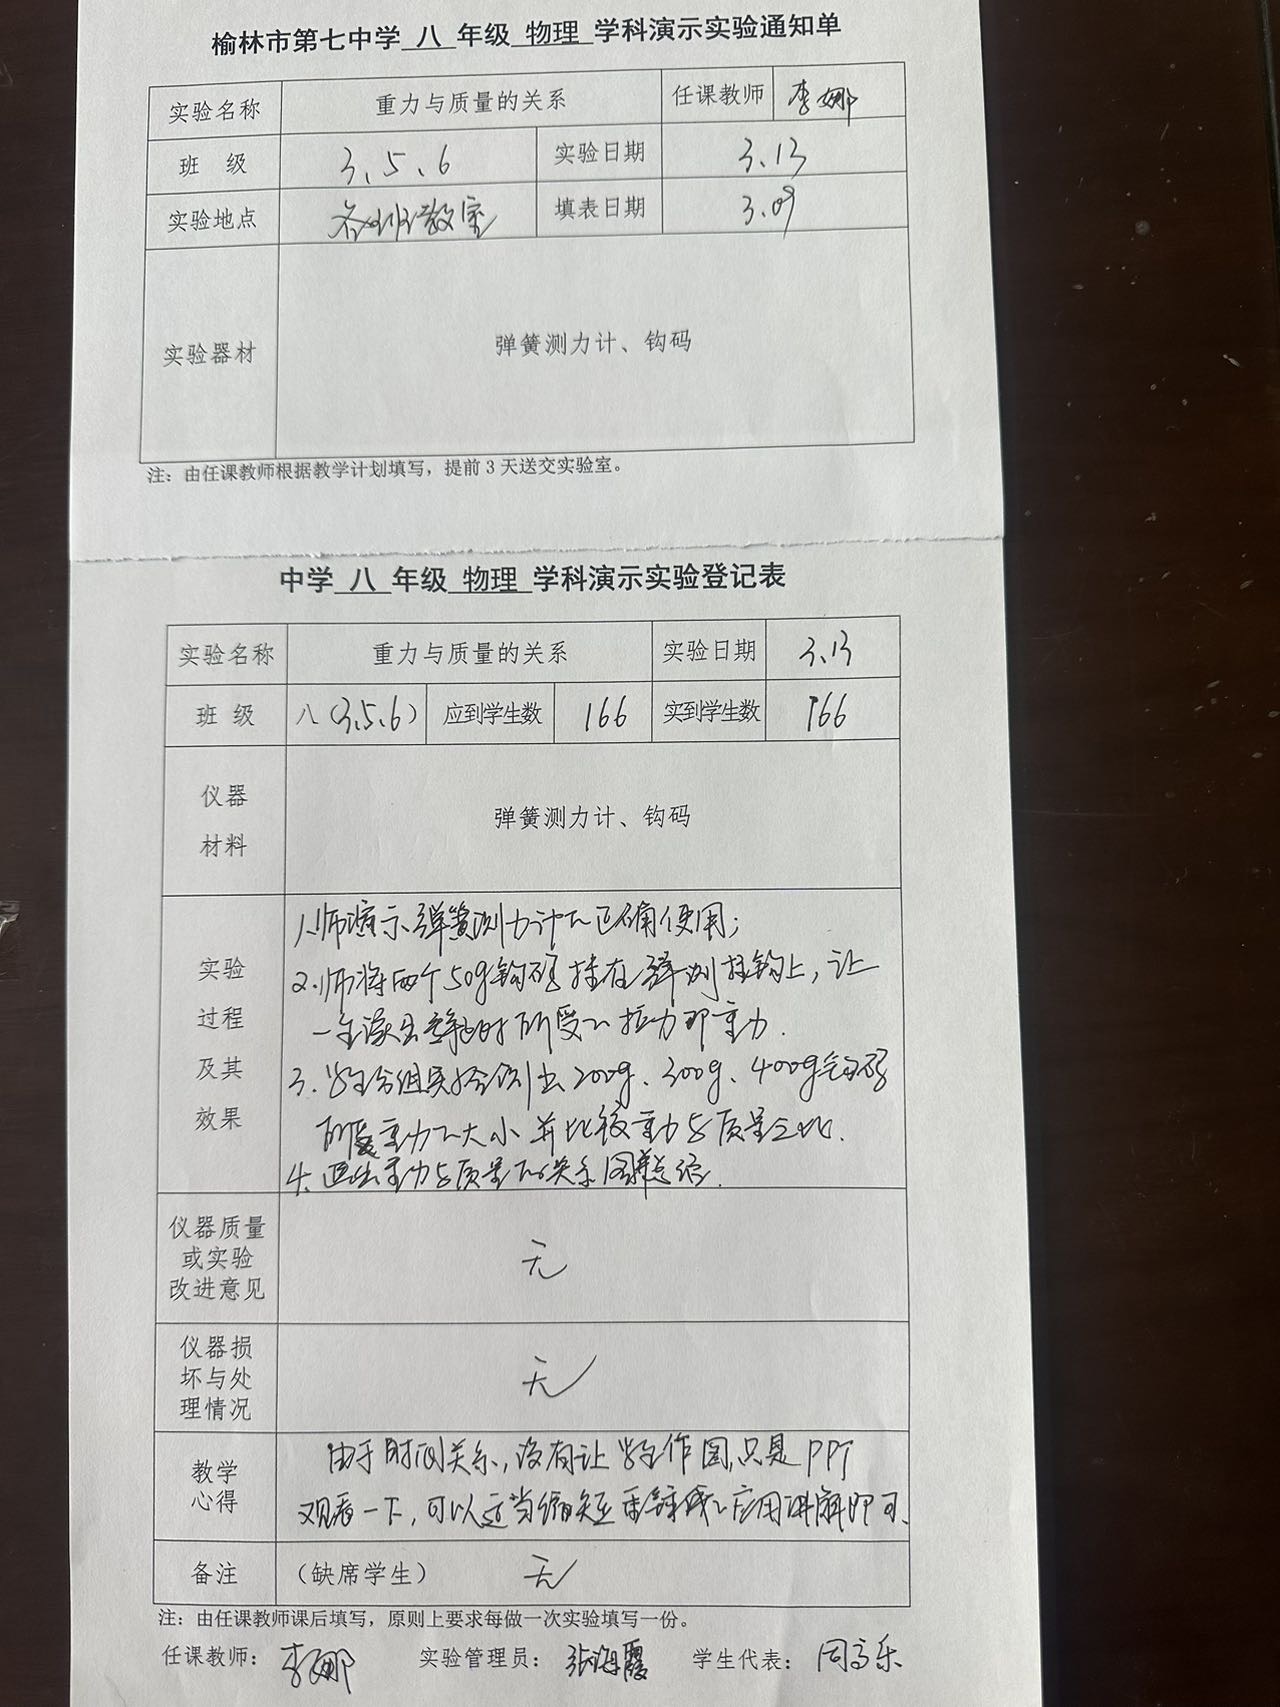 榆林市第七中学 八 年级 物理 学科演示实验通知单
实验名称 重力与质量的关系 任课教师 李娜
班 级 3、5、6 实验日期 3.13
实验地点 各班教室 填表日期 3.09
实验器材 弹簧测力计、钩码
注：由任课教师根据教学计划填写，提前 3 天送交实验室。
中学 八 年级 物理 学科演示实验登记表
实验名称 重力与质量的关系 实验日期 3.13
班 级 八（3.5.6） 应到学生数 166 实到学生数 166
仪器
材料
弹簧测力计、钩码
实验
过程
及其
效果
1.师演示弹簧测力计的正确使用；
2.师将两个50g钩码挂在弹测挂钩上，让
一生读出静止时所受的拉力即重力.
3.学生分组实验测出200g、300g、400g钩码
所受重力的大小并比较重力与质量之比.
4.画出重力与质量的关系图
仪器质量
或实验
改进意见
无
仪器损
坏与处
理情况
无
教学
心得
由于时间关系，没有让学生作图，只是PPT
观看一下，可以适当缩短重锤线的应用讲解即可.
备注 （缺席学生） 无
注：由任课教师课后填写，原则上要求每做一次实验填写一份。
任课教师：李娜 实验管理员：张海霞 学生代表：周